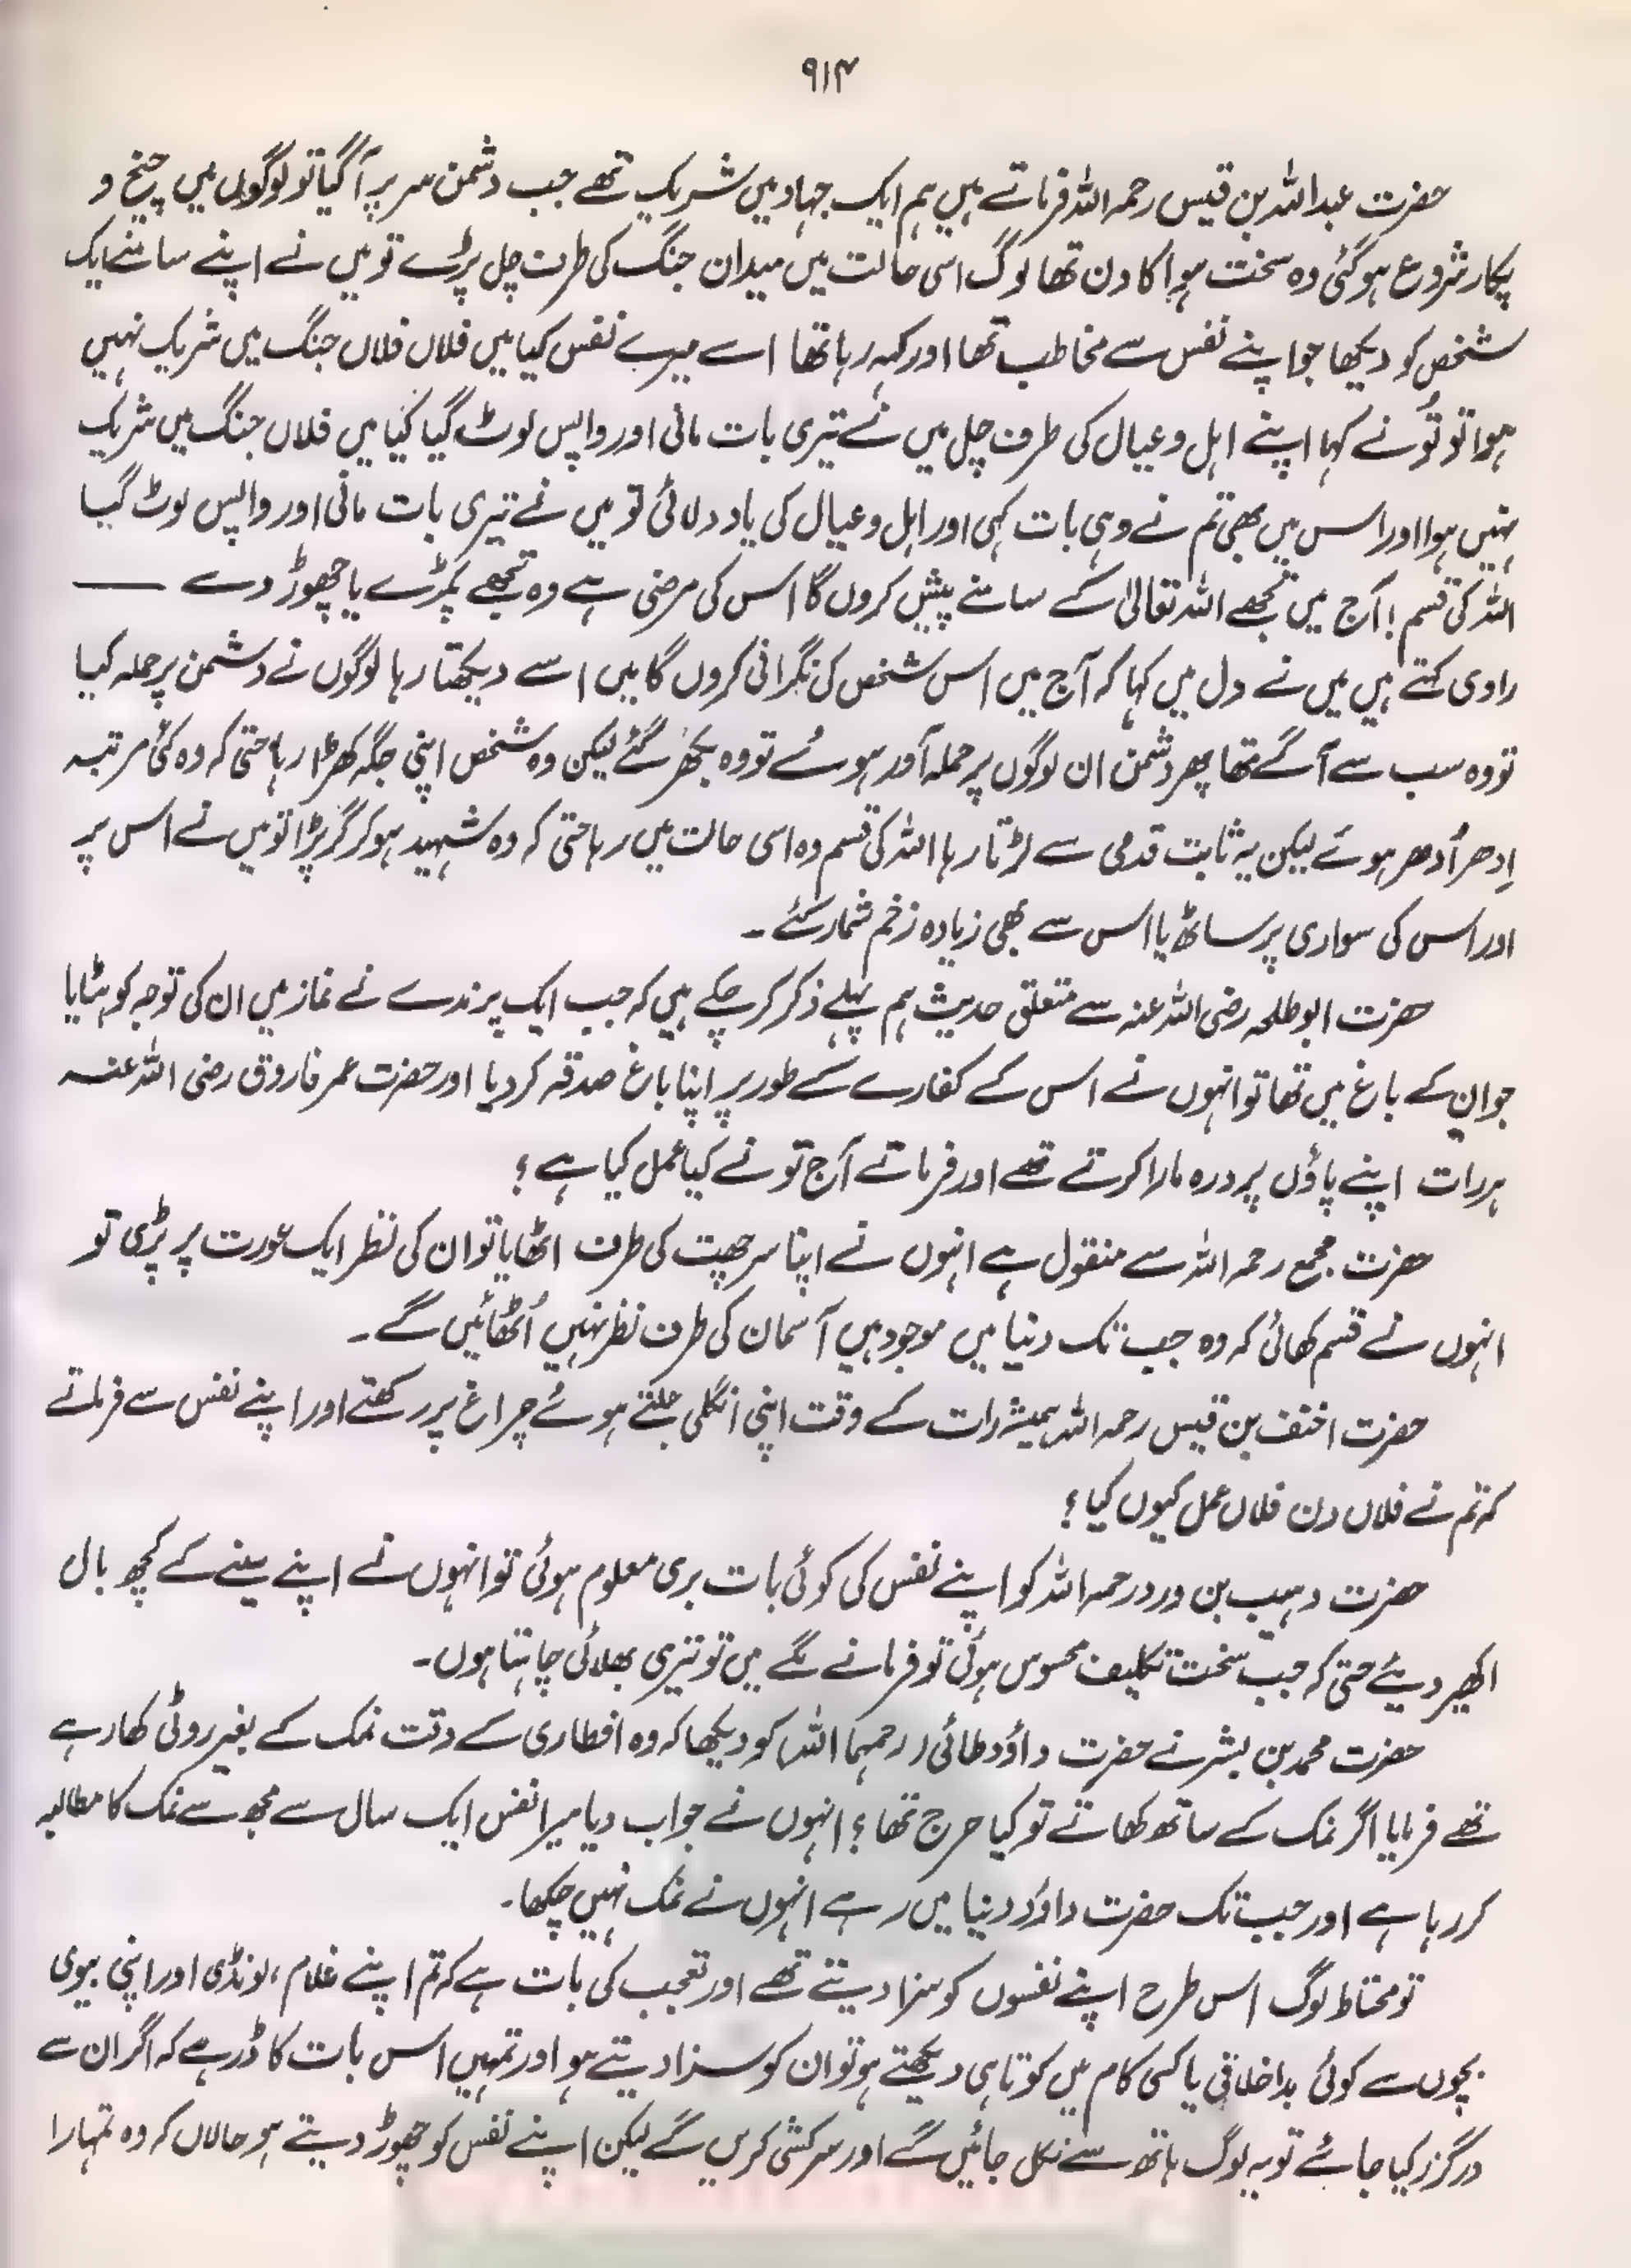 ۹۱۴
حضرت عبداللہ بن قیس رحمہ اللہ فرماتے ہیں ہم ایک جہاد میں شریک تھے جب دشمن سر پر آگیا تو لوگوں میں چیخ و
پکار شروع ہوگئی وہ سخت ہوا کا دن تھا لوگ اسی حالت میں میدان جنگ کی طرف چل پڑے تو میں نے اپنے سامنے ایک
شخص کو دیکھا جو اپنے نفس سے مخاطب تھا اور کہہ رہا تھا اے میرے نفس کیا میں فلاں فلاں جنگ میں شریک نہیں
ہوا تو تُو نے کہا اپنے اہل و عیال کی طرف چل میں نے تیری بات مانی اور واپس لوٹ گیا کیا میں فلاں جنگ میں شریک
نہیں ہوا اور اس میں بھی تم نے وہی بات کہی اور اہل و عیال کی یاد دلائی تو میں نے تیری بات مانی اور واپس لوٹ گیا
اللہ کی قسم! آج میں تجھے اللہ تعالیٰ کے سامنے پیش کروں گا اس کی مرضی ہے وہ تجھے پکڑے یا چھوڑ دے ——
راوی کہتے ہیں میں نے دل میں کہا کہ آج میں اس شخص کی نگرانی کروں گا میں اسے دیکھتا رہا لوگوں نے دشمن پر حملہ کیا
تو وہ سب سے آگے تھا پھر دشمن ان لوگوں پر حملہ آور ہوئے تو وہ بکھر گئے لیکن وہ شخص اپنی جگہ کھڑا رہا حتیٰ کہ وہ کئی مرتبہ
اِدھر اُدھر ہوئے لیکن یہ ثابت قدمی سے لڑتا رہا اللہ کی قسم وہ اسی حالت میں رہا حتیٰ کہ وہ شہید ہوکر گر پڑا تو میں نے اس پر
اور اس کی سواری پر ساٹھ یا اس سے بھی زیادہ زخم شمار کئے۔
حضرت ابوطلحہ رضی اللہ عنہ سے متعلق حدیث ہم پہلے ذکر کرچکے ہیں کہ جب ایک پرندے نے نماز میں ان کی توجہ کو ہٹایا
جو ان کے باغ میں تھا تو انہوں نے اس کے کفارے کے طور پر اپنا باغ صدقہ کردیا اور حضرت عمر فاروق رضی اللہ عنہ
ہر رات اپنے پاؤں پر درہ مارا کرتے تھے اور فرماتے آج تو نے کیا عمل کیا ہے؟
حضرت مجمع رحمہ اللہ سے منقول ہے انہوں نے اپنا سر چھت کی طرف اٹھایا تو ان کی نظر ایک عورت پر پڑی تو
انہوں نے قسم کھائی کہ وہ جب تک دنیا میں موجود ہیں آسمان کی طرف نظر نہیں اُٹھائیں گے۔
حضرت احنف بن قیس رحمہ اللہ ہمیشہ رات کے وقت اپنی انگلی جلتے ہوئے چراغ پر رکھتے اور اپنے نفس سے فرماتے
کہ تم نے فلاں دن فلاں عمل کیوں کیا؟
حضرت وہیب بن ورد رحمہ اللہ کو اپنے نفس کی کوئی بات بری معلوم ہوئی تو انہوں نے اپنے سینے کے کچھ بال
اکھیڑ دیئے حتیٰ کہ جب سخت تکلیف محسوس ہوئی تو فرمانے لگے میں تو تیری بھلائی چاہتا ہوں۔
حضرت محمد بن بشر نے حضرت داؤد طائی (رحمہما اللہ) کو دیکھا کہ وہ افطاری کے وقت نمک کے بغیر روٹی کھا رہے
تھے فرمایا اگر نمک کے ساتھ کھاتے تو کیا حرج تھا؟ انہوں نے جواب دیا میرا نفس ایک سال سے مجھ سے نمک کا مطالبہ
کر رہا ہے اور جب تک حضرت داؤد دنیا میں رہے انہوں نے نمک نہیں چکھا۔
تو محتاط لوگ اس طرح اپنے نفسوں کو سزا دیتے تھے اور تعجب کی بات ہے کہ تم اپنے غلام، لونڈی اور اپنی بیوی
بچوں سے کوئی بداخلاقی یا کسی کام میں کوتاہی دیکھتے ہو تو ان کو سزا دیتے ہو اور تمہیں اس بات کا ڈر ہے کہ اگر ان سے
درگزر کیا جائے تو یہ لوگ ہاتھ سے نکل جائیں گے اور سرکشی کریں گے لیکن اپنے نفس کو چھوڑ دیتے ہو حالاں کہ وہ تمہارا